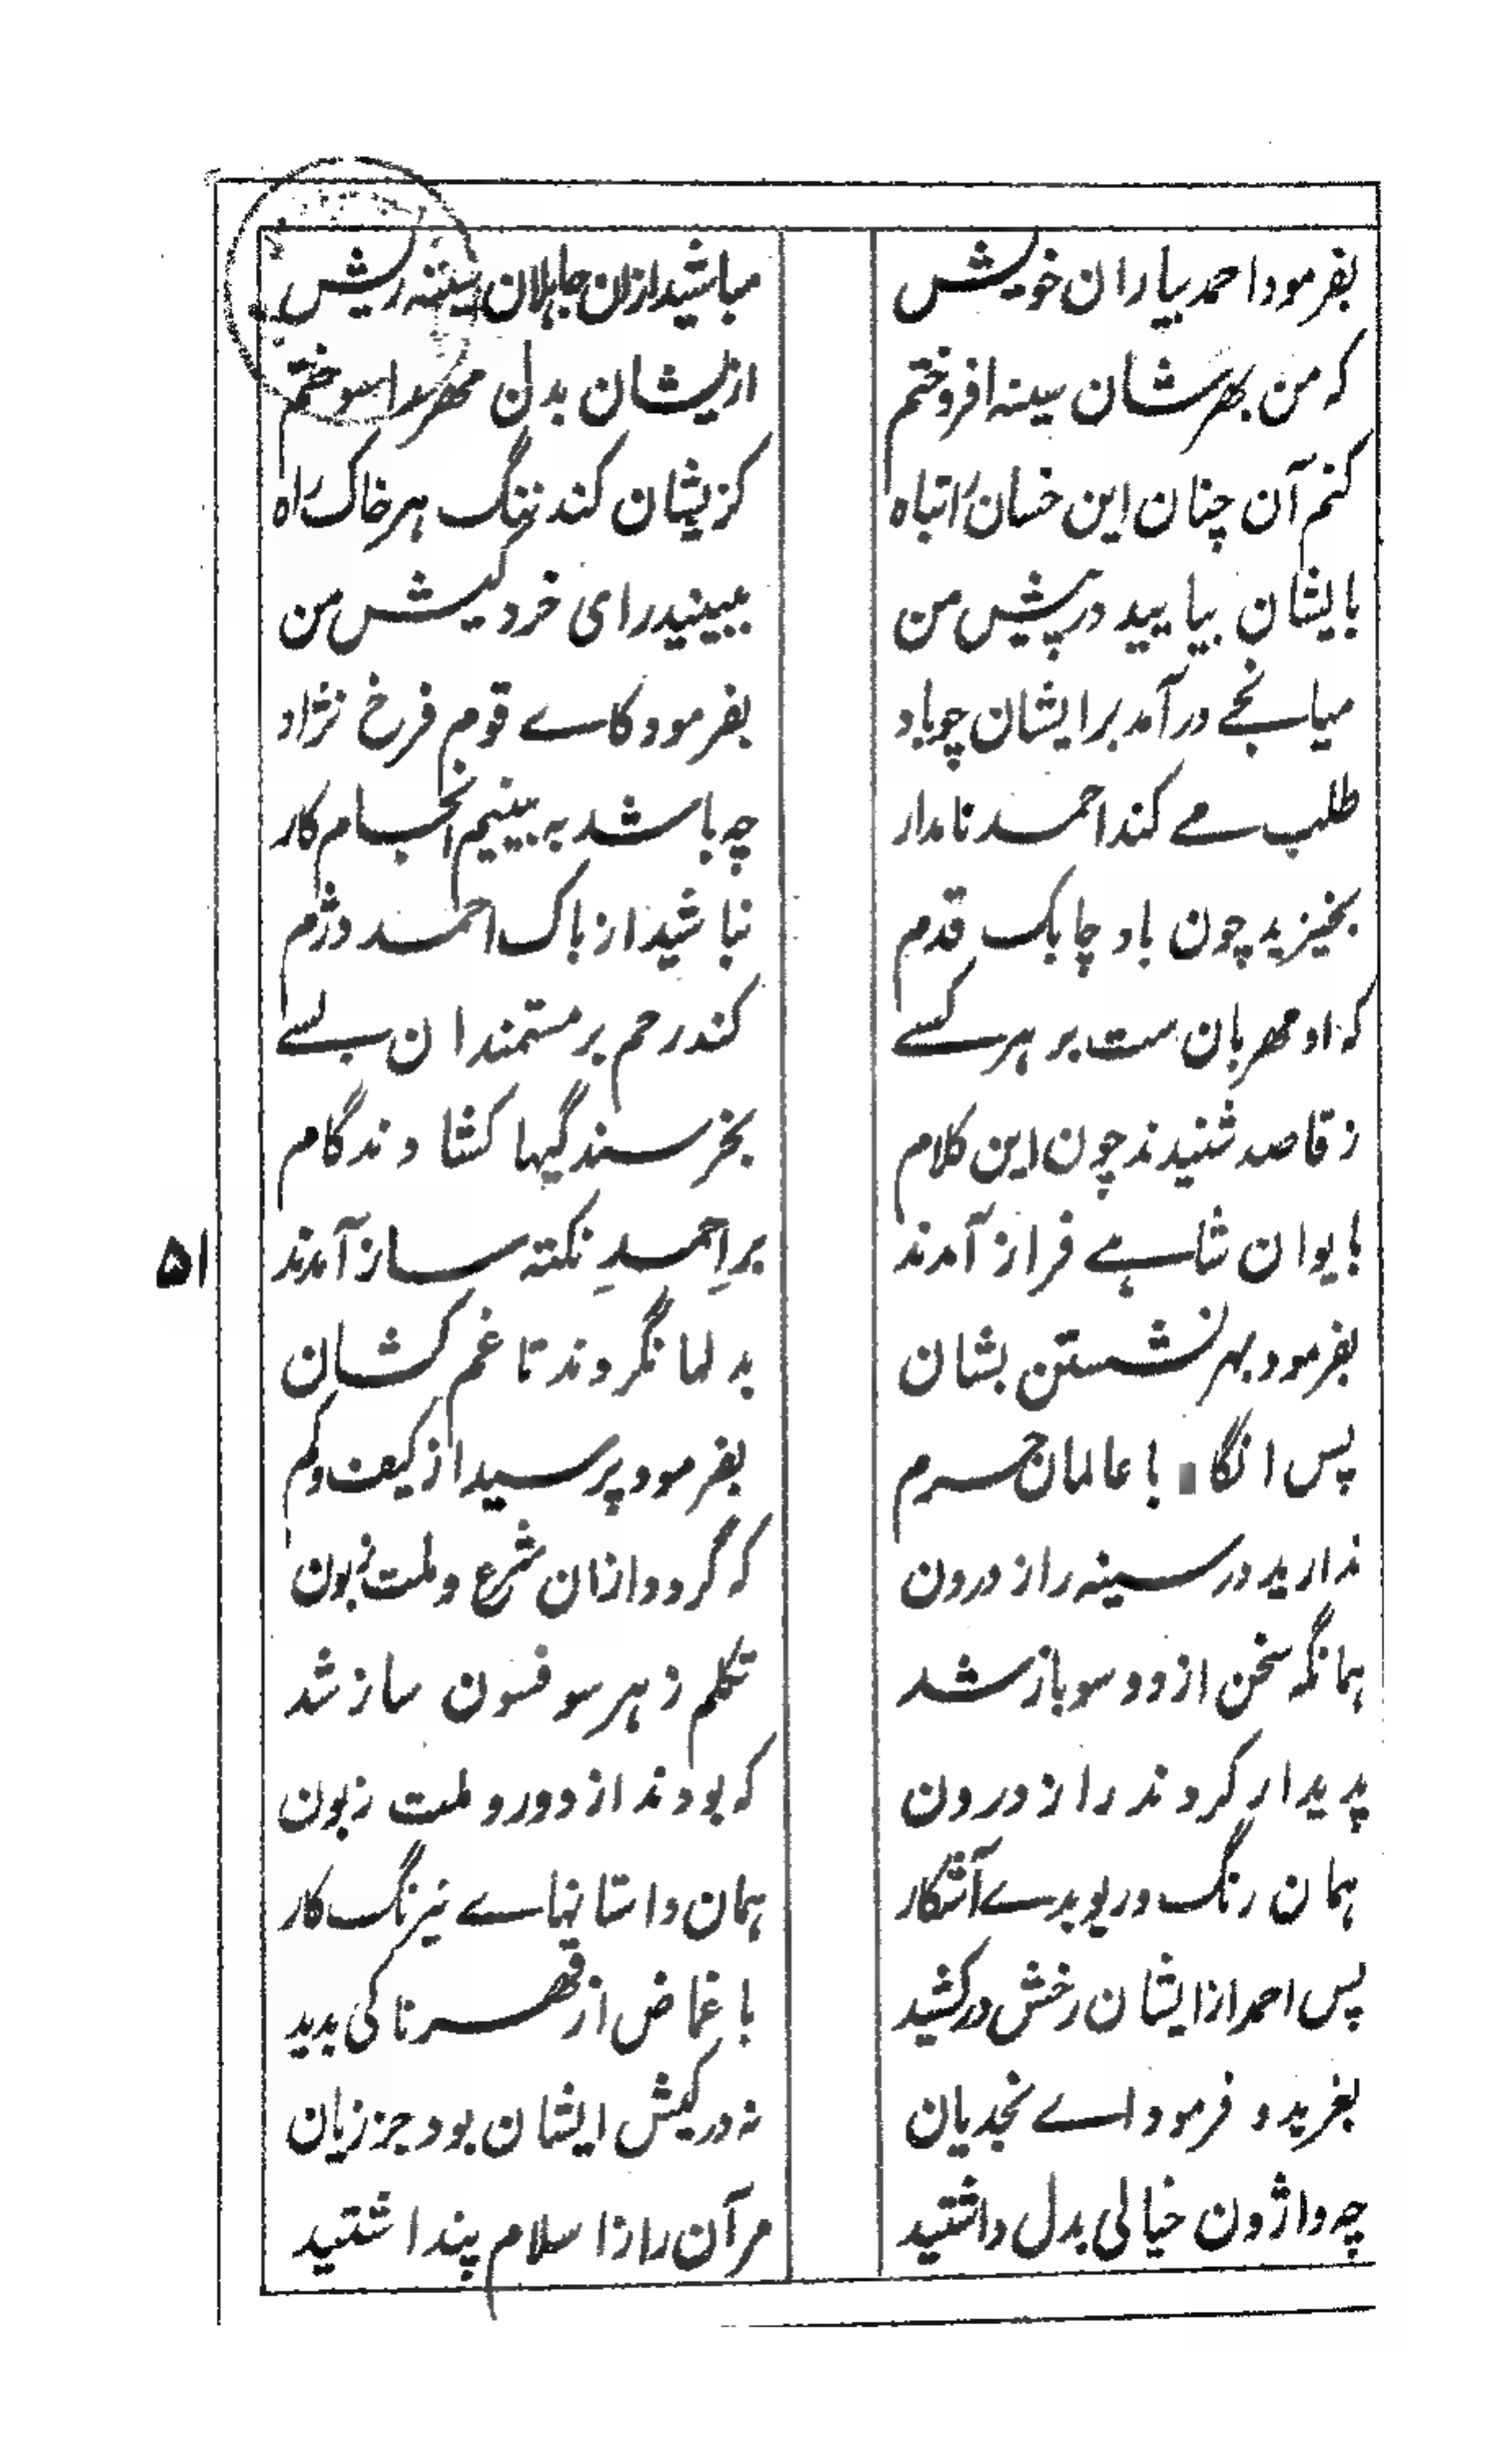 بفرمود احمد بیاران خویش مباشید ازان جاهلان سینه ریش
که من بهرشان سینه افروختم ازیشان بدل مهر را سوختم
کنم آن چنان این خسان را تباه کزیشان کند ننگ هر خاک راه
بایشان بیایید در پیش من ببینید رای خرد کیش من
میانجے در آمد بر ایشان چو باد بفرمود کاے قوم فرخ نژاد
طلب مے کند احمد نامدار چه باشد به بینیم انجام کار
بخیزید چون باد چابک قدم نباشید از باک احمد دژم
که او مهربان ست بر هر کسے کند رحم بر مستمندان بسے
ز قاصد شنیدند چون این کلام بخرسندگیها کشادند گام
بایوان شاہے فراز آمدند بر احمدِ نکته ساز آمدند
۵۱
بفرمود بهر نشستن بشان بدلها نگردند تا غم کشان
پس انگاه با عالمان حرم بفرمود پرسید از کیف و کم
ندارید در سینه راز درون که گردد ازنان شرع و ملت زبون
همانگه سخن از دو سو باز شد تکلم ز هر سو فسون ساز شد
پدیدار کردند راز درون که بودند از دور و ملت زبون
همان رنگ و ریو بدے آشکار همان داستانهاے نیرنگ کار
پس احمد از ایشان رخش در کشید باغماض از قهرناکی بدید
بغرید و فرمود اے نجدیان نه در کیش ایشان بود جز زیان
چه واژون خیالی بدل داشتید مر آن را ز اسلام پنداشتید